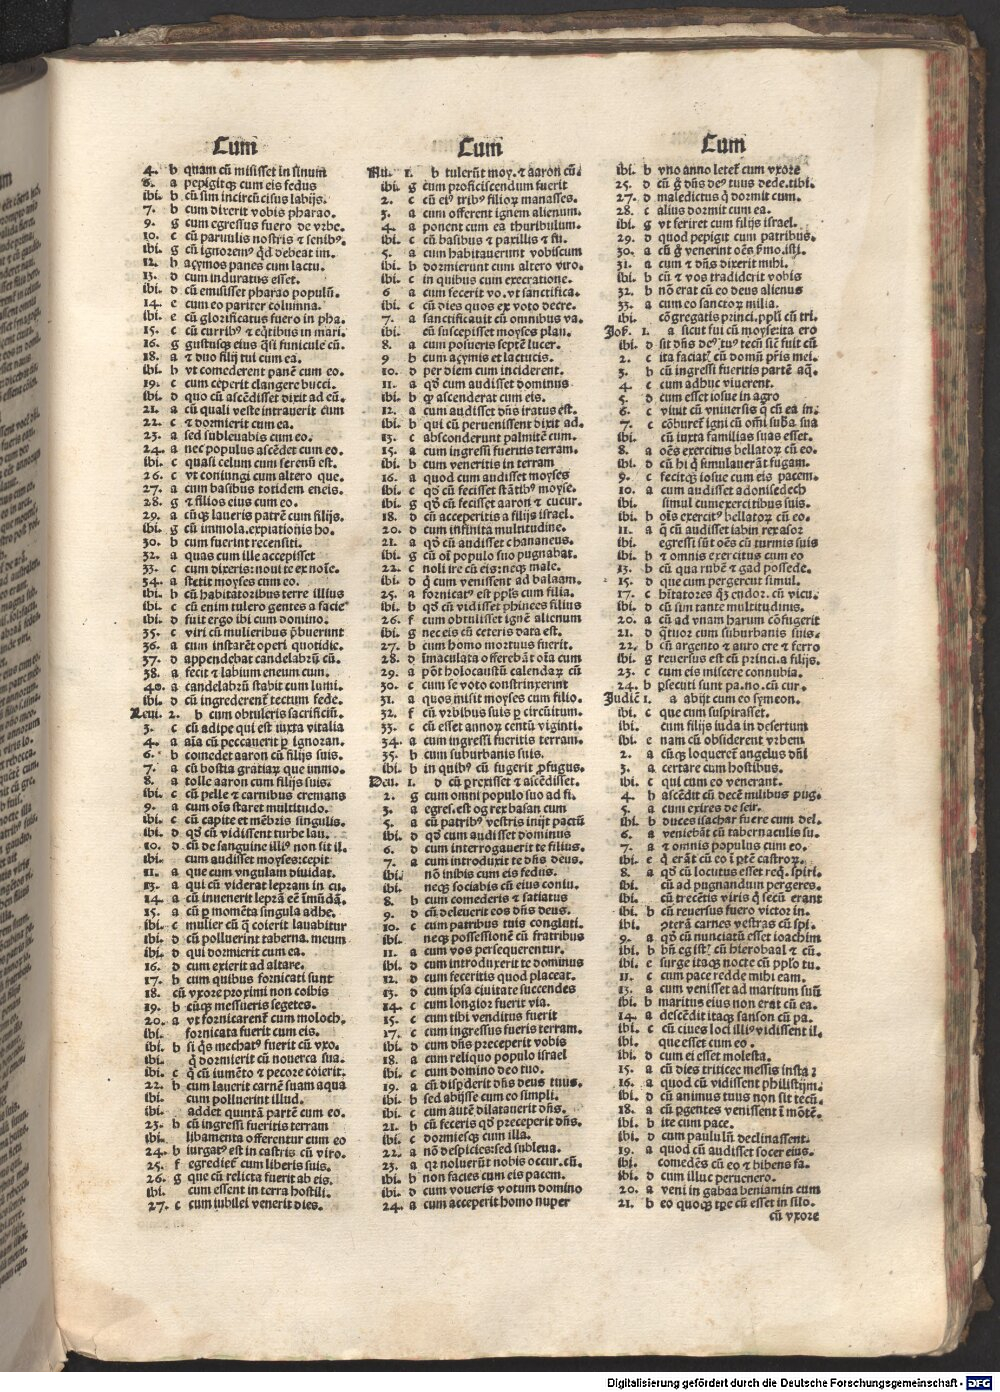 Cum
4. b quam cū misisset in sinum
6. a pepigitqꝫ cum eis fedus
ibi. b cū sim incircūcisus labijs.
7. b cum dixerit vobis pharao.
9. g cum egressus fuero de vrbe.
10. c cū paruulis nostris ⁊ senibꝰ.
ibi. g cū ignoremꝰ qd debeat im.
12. b açymos panes cum lactu.
13. d cum induratus esset.
ibi. d cū emisisset pharao populū.
14. e cum eo pariter columna.
ibi. e cū glorificatus fuero in pha.
15. c cū curribꝰ ⁊ eqtibus in mari.
16. g gustusqꝫ eius qsi funicule cū.
18. a ⁊ duo filij tui cum ea.
ibi. b vt comederent panē cum eo.
19. c cum ceperit clangere bucci.
ibi. d quo cū ascēdisset dixit ad eū.
21. a cū quali veste intrauerit cum
22. c ⁊ dormierit cum ea.
23. a sed subleuabis cum eo.
24. a nec populus ascēdet cum eo.
ibi. c quasi celum cum serenū est.
26. c vt coniungi cum altero que.
27. a cum basibus totidem eneis.
28. g ⁊ filios eius cum eo.
29. a cūqꝫ laueris patrē cum filijs.
ibi. g cū immola.expiationis ho.
30. b cum fuerint recensiti.
32. a quas cum ille accepisset
33. c cum dixeris: noui te ex noīe.
34. a stetit moyses cum eo.
ibi. b cū habitatoribus terre illius
ibi. c cū enim tulero gentes a facie
ibi. d fuit ergo ibi cum domino.
35. c viri cū mulieribus p̄buerunt
36. a cum instarēt operi quotidie.
37. d appendebat candelabrū cū.
38. a fecit ⁊ labium eneum cum.
40. a candelabrū stabit cum lumi.
ibi. d cū ingrederent tectum fede.
Leui. 2. b cum obtuleris sacrificiū.
3. c cū adipe qui est iuxta vitalia
4. a aīa cū peccauerit p ignoran.
6. b comedet aaron cū filijs suis.
7. a cū hostia gratiaꝝ que immo.
8. a tolle aaron cum filijs suis.
ibi. c cū pelle ⁊ carnibus cremans
9. a cum oīs staret multitudo.
ibi. c cū capite et mēbris singulis.
ibi. d qd cū vidissent turbe lau.
10. d cū de sanguine illiꝰ non sit il.
ibi. cum audisset moyses:cepit
11. a que cum vngulam diuidat.
13. a qui cū viderat lepram in cu.
14. a cū inuenerit leprā eē īmūdā.
15. a cū p momēta singula adhe.
ibi. c mulier cū q coierit lauabitur
ibi. d cū polluerint taberna. meum
ibi. d qui dormierit cum ea.
16. d cum exierit ad altare.
17. b cum quibus fornicati sunt
18. cū vxore proximi non coibis
19. b cūqꝫ messueris segetes.
20. a vt fornicarent cum moloch.
ibi. fornicata fuerit cum eis.
ibi. b si qs mechatꝰ fuerit cū vxo.
ibi. q dormierit cū nouerca sua.
ibi. c q cū iumēto ⁊ pecore coierit.
22. b cum lauerit carnē suam aqua
ibi. cum polluerint illud.
ibi. addet quintā partē cum eo.
23. b cū ingressi fueritis terram
ibi. libamenta offerentur cum eo
24. b iurgatꝰ est in castris cū viro.
25. f egrediet cum liberis suis.
26. g que cū relicta fuerit ab eis.
ibi. cum essent in terra hostili.
27. c cum iubilei venerit dies.

Cum
Nu. 1. b tulerūt moy. ⁊ aaron cū.
ibi. g cum proficiscendum fuerit
2. c cū eiꝰ tribꝰ filioꝝ manasses.
3. a cum offerent ignem alienum.
4. a ponent cum ea thuribulum.
ibi. c cū basibus ⁊ paxillis ⁊ fu.
5. a cum habitauerunt vobiscum
ibi. b dormierunt cum altero viro.
ibi. c in quibus cum execratione.
6 a cum fecerit vo. vt sanctifica.
ibi. c cū dies quos ex voto decre.
7. a sanctificauit cū omnibus va.
ibi. cū suscepisset moyses plau.
8. a cum posueris septē lucer.
9 b cum açymis et lactucis.
10. d per diem cum inciderent.
11. a qd cum audisset dominus
ibi. b qꝫ ascenderat cum eis.
12. a cum audisset dn̄s iratus est.
ibi. b qui cū peruenissent dixit ad.
13. c absconderunt palmitē cum.
15. a cum ingressi fueritis terram.
ibi. b cum veneritis in terram
16. a quod cum audisset moyses
ibi. c qd cū fecisset stātibꝰ moyse.
ibi. g qd cū fecisset aaron ⁊ cucur.
18. d cū acceperitis a filijs israel.
20. d cum infinita multitudine.
21. a qd cū audisset chananeus.
ibi. g cū oī populo suo pugnabat.
22. c noli ire cū eis:neqꝫ male.
ibi. d q cum venissent ad balaam.
25. a fornicatꝰ est ppls cum filia.
ibi. b qd cū vidisset phinees filius
26. f cum obtulisset ignē alienum
ibi. g nec eis cū ceteris data est.
27. b cum homo mortuus fuerit.
28. d īmaculata offerebāt oīa cum
29. a pōt holocaustū calendaꝝ cū
30. c cum se voto constrinxerint
31. a quos misit moyses cum filio.
32. f cū vrbibus suis p circūitum.
33. c cū esset annoꝝ centū viginti.
34. a cum ingressi fueritis terram.
35. b cum suburbanis suis.
ibi. b in quibꝰ cū fugerit p̄fugus.
Deu. 1. d cū prexisset ⁊ ascēdisset.
2. g cum omni populo suo ad fi.
3. a egres.est og rex basan cum
5. a cū patribꝰ vestris inijt pactū
ibi. d qd cum audisset dominus
6. d cum interrogauerit te filius.
7. a cum introduxit te dn̄s deus.
ibi. nō inibis cum eis fedus.
ibi. necqꝫ sociabis cū eius coniu.
8. b cum comederis ⁊ satiatus
9. d cū deleuerit eos dn̄s deus.
10. c cum patribus tuis congluti.
ibi. necqꝫ possessionē cū fratribus
11. a cum vos persequerentur.
ibi. d cum introduxerit te dominus
12. d cum feceritis quod placeat.
13. d cum ipsa ciuitate succendes
14. c cum longior fuerit via.
15. c cum tibi venditus fuerit
17. c cum ingressus fueris terram.
ibi. d cum dn̄s preceperit vobis
18. a cum reliquo populo israel
ibi. c cum domino deo tuo.
19. a cū disp̄derit dn̄s deus tuus.
ibi. b sed abijsse cum eo simpli.
ibi. c cum autē dilatauerit dn̄s.
21. b cū feceris qd preceperit dn̄s.
ibi. c dormiesqꝫ cum illa.
22. a nō despicies:sed subleua.
23. a qꝛ noluerūt nobis occur.cū.
ibi. b non facies cum eis pacem.
ibi. d cum voueris votum domino
24. a cum acceperit homo nuper

Cum
ibi. b vno anno letet cum vxore
25. d cū g̊ dn̄s deꝰ tuus dede.tibi.
27. d maledictus q dormit cum.
28. c alius dormit cum ea.
ibi. g vt feriret cum filijs israel.
29. d quod pepigit cum patribus.
30. a cū g̊ venerint oēs hmo.isti.
31. a cum ⁊ dn̄s dixerit mihi.
ibi. b cū ⁊ vos tradiderit vobis
32. b nō erat cū eo deus alienus
33. a cum eo sanctoꝝ milia.
ibi. cōgregatis princi.ppli cū tri.
Jos. 1. a sicut fui cū moyse:ita ero
ibi. d sit dn̄s deꝰ tuꝰ tecū sic̄ fuit cū
2. c ita faciatꝭ cū domū pr̄is mei.
3. b cū ingressi fueritis partē aq.
4. c cum adhuc viuerent.
5. d cum esset iosue in agro
6. c viuat cū vniuersis q cū ea in:
7. c cōburet igni cū omī suba sua
ibi. cū iuxta familias suas esset.
8. a oēs exercitus bellatoꝝ cū eo.
ibi. d cū hi q simulauerāt fugam.
9. c fecitqꝫ iosue cum eis pacem.
10. a cum audisset adonisedech
ibi. simul cum exercitibus suis.
ibi. b oīs exercitꝰ bellatoꝝ cū eo.
11. a q cū audisset iabin rex asor
ibi. egressi sūt oēs cū turmis suis
ibi. b ⁊ omnis exercitus cum eo
13. b cū qua rubē ⁊ gad possede.
15. d que cum pergerent simul.
17. c hītatores qꝫ endor. cū vicu.
ibi. d cū sim tante multitudinis.
20. a cū ad vnam harum cōfugerit
21. d quor cum suburbanis suis.
22. b cū argento ⁊ auro ere ⁊ ferro
ibi. g reuersus est cū princi.a filijs.
23. c cum eis miscere connubia.
24. b psecuti sunt pa.no.cū cur.
Judic̄ 1. a abijt cum eo symeon.
ibi. c que cum suspirasset.
ibi. cum filijs iuda in desertum
ibi. e nam cū obsiderent vrbem
2. a cūqꝫ loqueret angelus dn̄i
3. a certare cum hostibus.
ibi. c qui cum eo venerant.
4. b ascēdit cū decē milibus pug.
5. a cum exires de seir.
ibi. b duces isachar fuere cum del.
6. a veniebāt cū tabernaculis su.
7. a ⁊ omnis populus cum eo.
ibi. e q erāt cū eo ī ptē castroꝝ.
8. a qd cū locutus esset req. spiri.
ibi. cū ad pugnandum pergeres.
ibi. cū trecētis viris q secū erant
ibi. b cū reuersus fuero victor in.
ibi. pterā carnes vestras cū spi.
9. a qd cū nunciatū esset ioachim
ibi. b bn̄ eg istꝭ cū hierobaal ⁊ cū.
ibi. e surge itaqꝫ nocte cū pplo tu.
11. c cum pace redde mihi eam.
13. a cum venisset ad maritum suū
ibi. b maritus eius non erat cū ea.
14. a descēdit itaqꝫ sanson cū pa.
ibi. c cū ciues loci illiꝰ vidissent il.
ibi. que esset cum eo.
ibi. d cum ei esset molesta.
15. a cū dies triticee messis insta:
16. a quod cū vidissent philistijm.
ibi. d cū animus tuus non sit tecū.
18. a cū pgentes venissent ī mōtē.
ibi. b ite cum pace.
ibi. d cum paululū declinassent.
19. a quod cū audisset socer eius.
ibi. comedēs cū eo ⁊ bibens sa.
ibi. d cum illuc peruenero.
20. a veni in gabaa beniamin cum
21. b eo quoqꝫ tꝑe cū esset in silo.
cū vxore
Digitalisierung gefördert durch die Deutsche Forschungsgemeinschaft - DFG